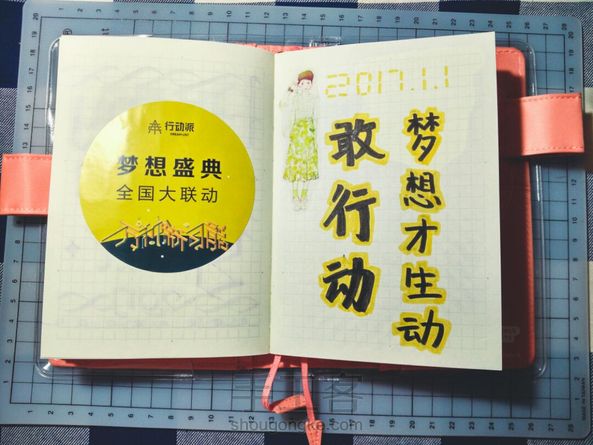 行动派
DREAMLIST
梦想盛典
全国大联动
2017.1.1
敢行动
梦想才生动
手工客
shougongke.com